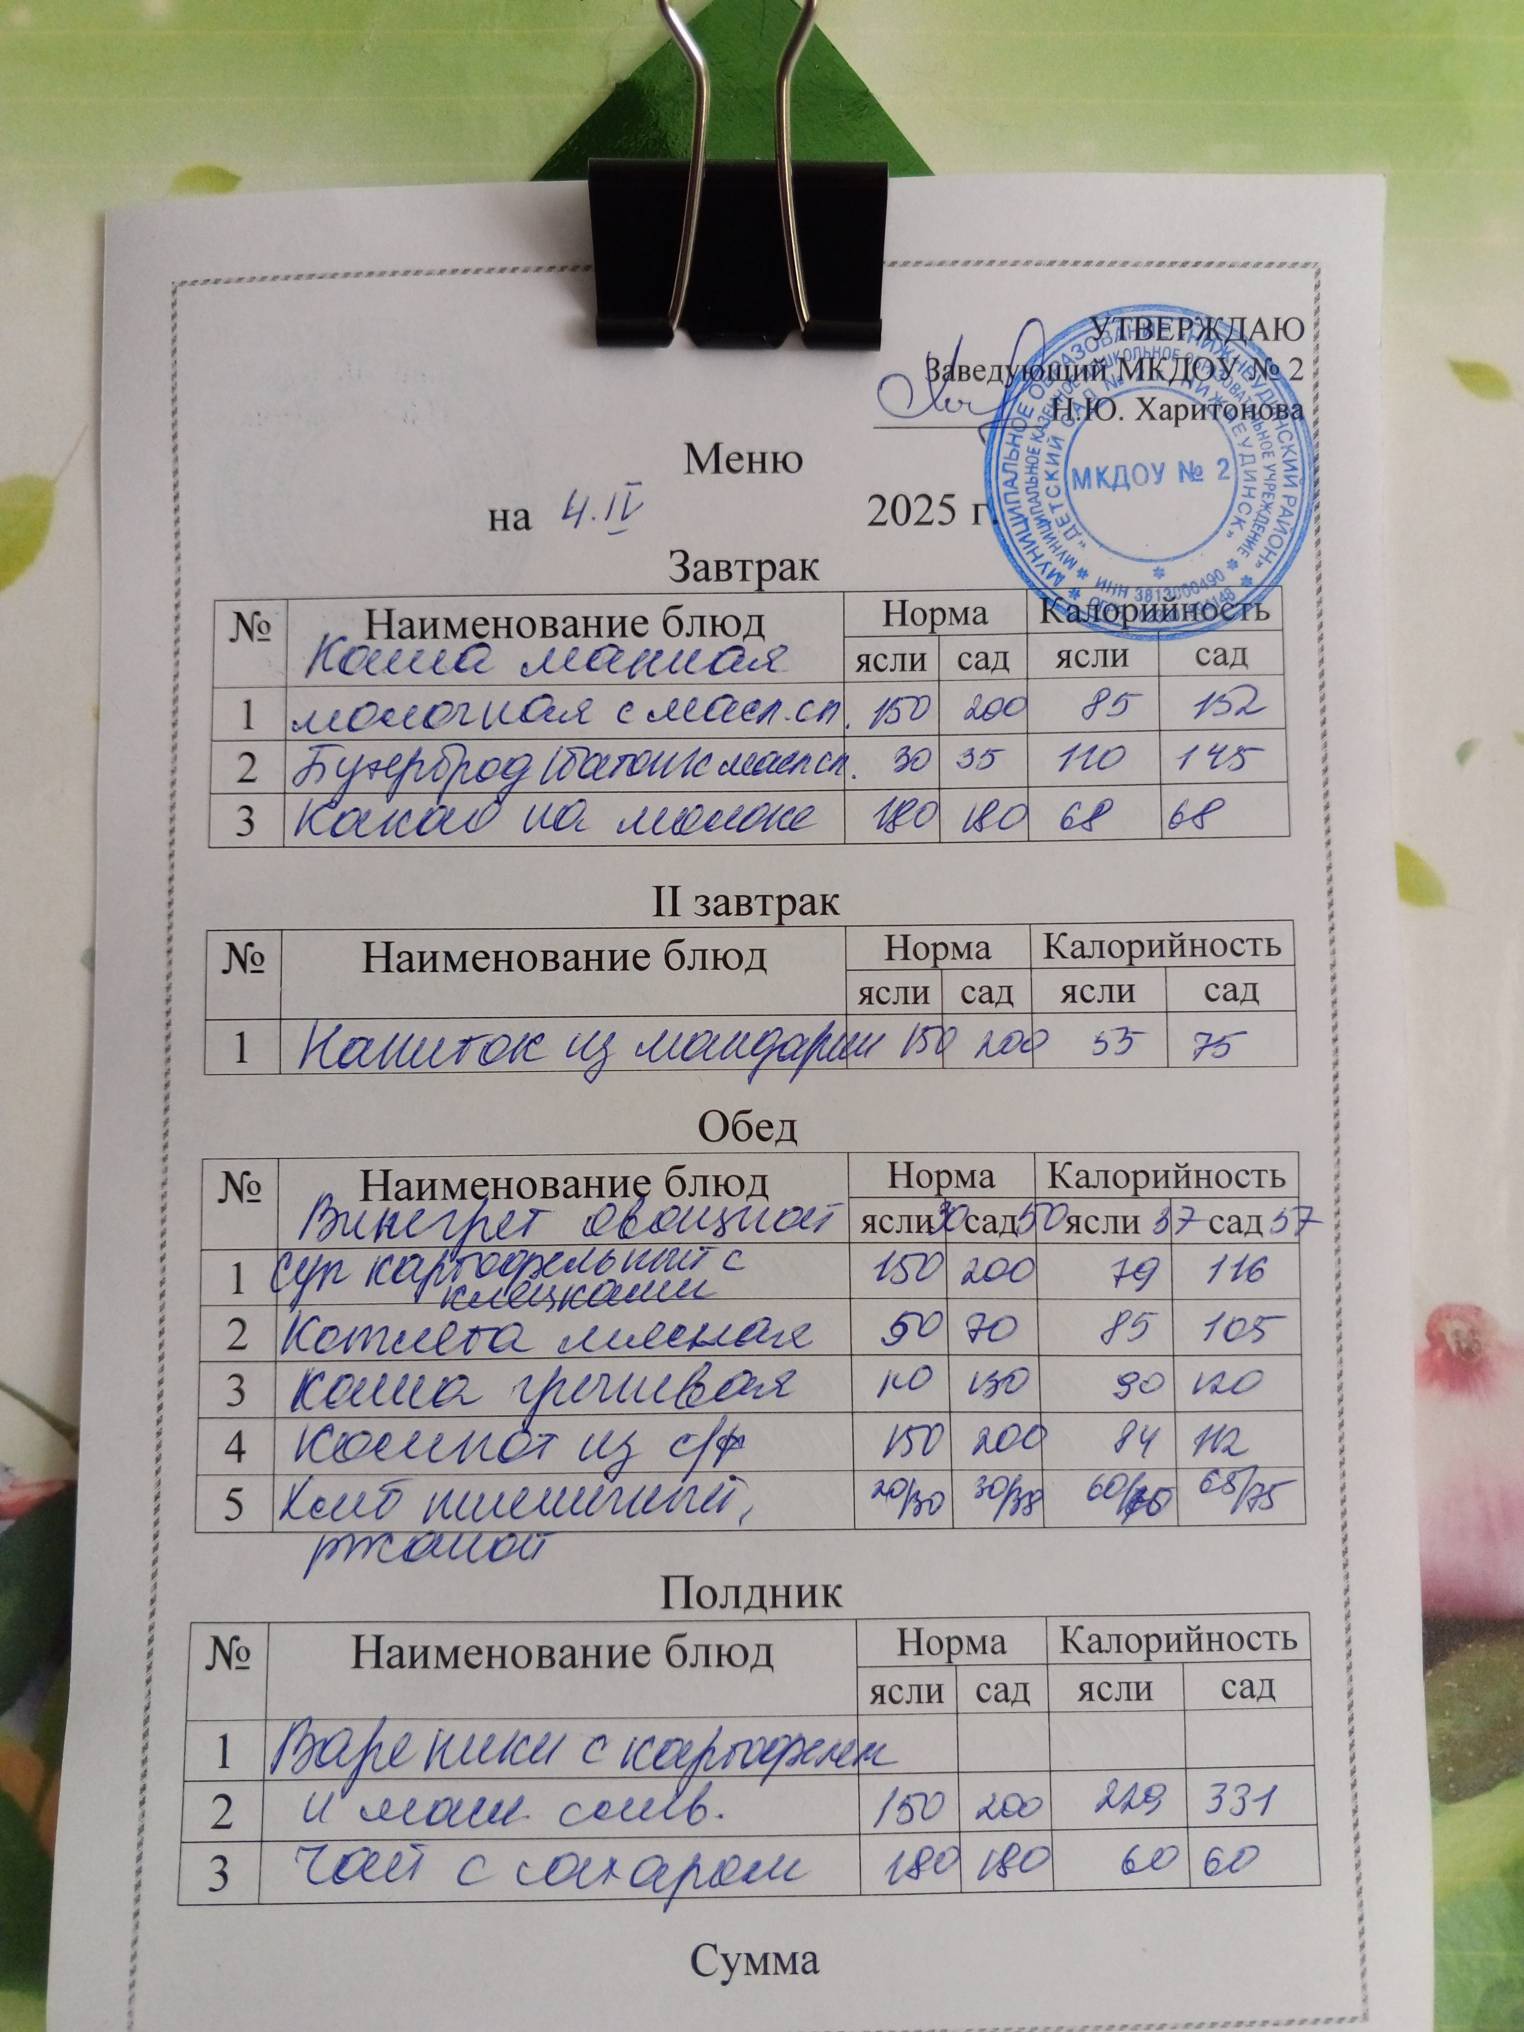 УТВЕРЖДАЮ
Заведующий МКДОУ № 2
Н.Ю. Харитонова
МКДОУ № 2
Меню
на 4.IV 2025 г.
Завтрак
№ Наименование блюд Норма Калорийность
ясли сад ясли сад
Каша манная
1 молочная с масл.сл. 150 200 85 152
2 Бутерброд (батон) с масл сл. 30 35 110 145
3 Какао на молоке 180 180 68 68
II завтрак
№ Наименование блюд Норма Калорийность
ясли сад ясли сад
1 Напиток из мандарин 150 200 55 75
Обед
№ Наименование блюд Норма Калорийность
Винегрет овощной ясли 30 сад 50 ясли 37 сад 57
1 Суп картофельный с 150 200 79 116
клёцками
2 Котлета мясная 50 70 85 105
3 Каша гречневая 110 130 90 120
4 Компот из с/ф 150 200 84 112
5 Хлеб пшеничный, 20/30 30/38 60/ 68/75
ржаной
Полдник
№ Наименование блюд Норма Калорийность
ясли сад ясли сад
1 Вареники с картофелем
2 и масл. слив. 150 200 229 331
3 Чай с сахаром 180 180 60 60
Сумма